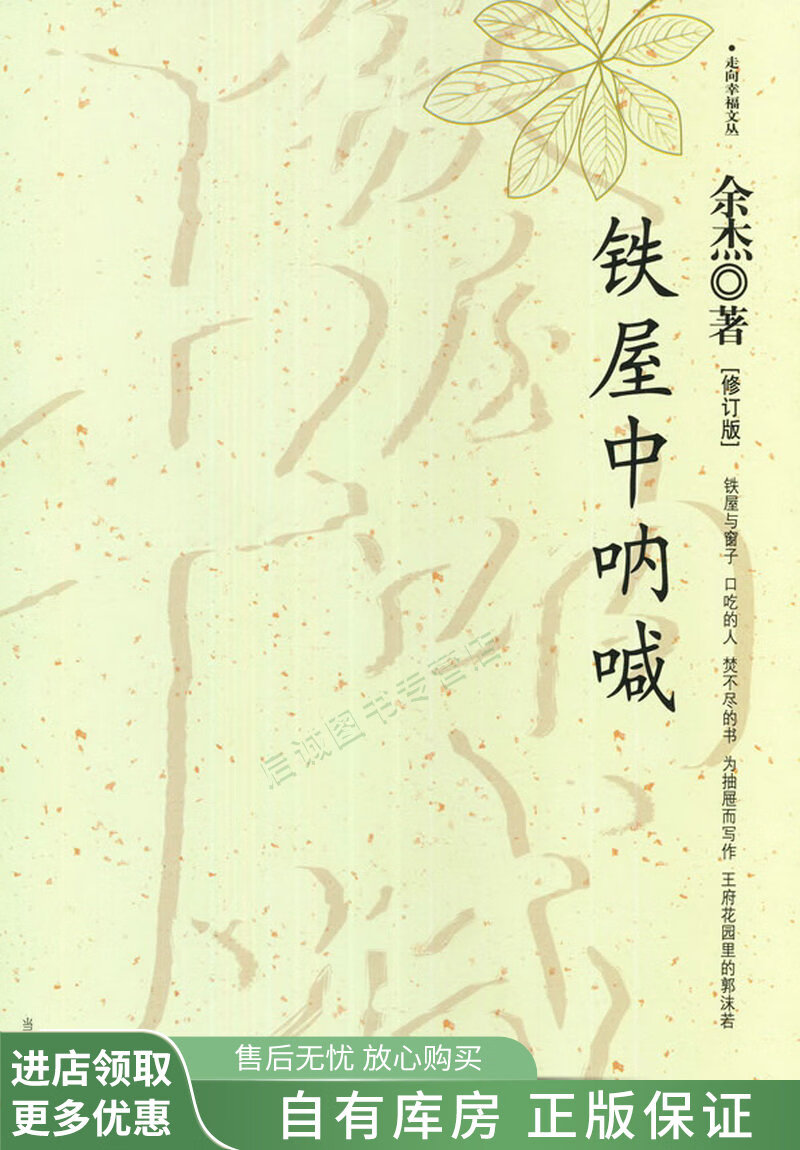 •走向幸福文丛
余杰◎著
[修订版]
铁屋与窗子 口吃的人 焚不尽的书 为抽屉而写作 王府花园里的郭沫若
铁屋中呐喊
启诚图书专营店
当
进店领取
更多优惠
售后无忧 放心购买
自有库房 正版保证